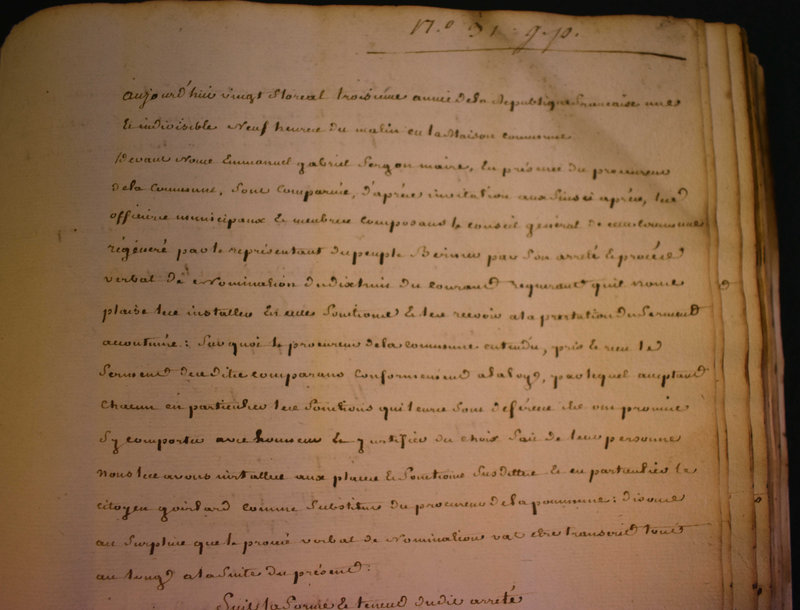 N.º 31 g.p.
aujourd'huy vingt floreal troisiéme année de la Republique francaise une
& indivisible Neuf heures du matin en la Maison commune
Devant Nous Emmanuel gabriel Sergon maire, En présence du procureur
de la Commune, Sont Comparus, d'après invitation aux fins ci après, les
officiers municipaux & membres Composans le conseil général de cette Commune
régénéré par le représentant du peuple par Son arrêté & procés
verbal de Nomination du dix huit du courant requerant qu'il nous
plaise les installer Es dites fonctions & les recevoir a la prestation du Serment
accoutumé : Sur quoi le procureur de la commune entendu, pris & reçu le
Serment des dits comparans Conformement a la loy, par lequel acceptant
chacun en particulier les fonctions qui leurs Sont déférées ils ont promis
S'y comporter avec honneur & justifier du choix fait de leur personne
Nous les avons installés aux places & fonctions Susdittes & en particulier le
citoyen goirard comme Substitut du procureur de la commune : disons
au Surplus que le procés verbal de Nomination va être transcrit tout
au long a la Suite du présent :
Suit la forme & teneur du dit arrêté